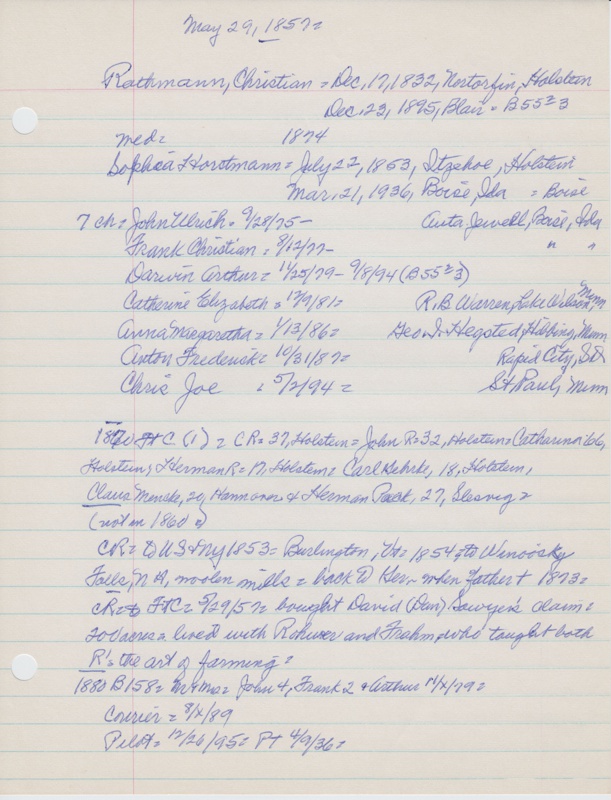 May 29, 1857=
Rathmann, Christian = Dec. 17, 1832, Nortorfin, Holstein
Dec. 23, 1895, Blair = B55=3
med= 1874
Sophia Horstmann = July 22, 1853, Itzehoe, Holstein
Mar. 21, 1936, Boise, Ida = Boise
7 ch = John Ulrich = 9/28/75- Auta Jewell, Boise, Ida
Frank Christian = 8/12/77- " "
Darwin Arthur = 11/25/79- 9/8/94 (B55=3)
Catherine Elizabeth = 12/9/81= R.B Warren, Lake Wilson, Minn
Anna Margaretha = 1/13/86= Geo. I. Hegsted, Hibbing, Minn
Anton Frederick = 10/31/87= Rapid City, SD
Chris Joe = 5/2/94 = St, Paul, Minn
1870 Ft C (1) = CR=37, Holstein = John R=32, Holstein= Catharina 66,
Holstein; Herman R=17, Holstein= Carl Kehrke, 18, Holstein,
Claus Menske, 29, Hannover & Herman Pack, 27, Slesvig=
(not in 1860=)
CR= to US & NY 1853= Burlington, Vt= 1854= to Winooski
Falls, N H, woolen mills = back to Ger- when father + 1873=
CR= to FtC= 5/29/57= bought David (Dan) Sawyer's claim=
200 acres = lived with Rohwer and Frahm, who taught both
R's= the art of farming=
1880 B158= Mr & Mrs= John 4, Frank 2 & Arthur 11/x/79=
Courier = 8/x/89
Pilot= 12/26/95= PT 4/9/36=